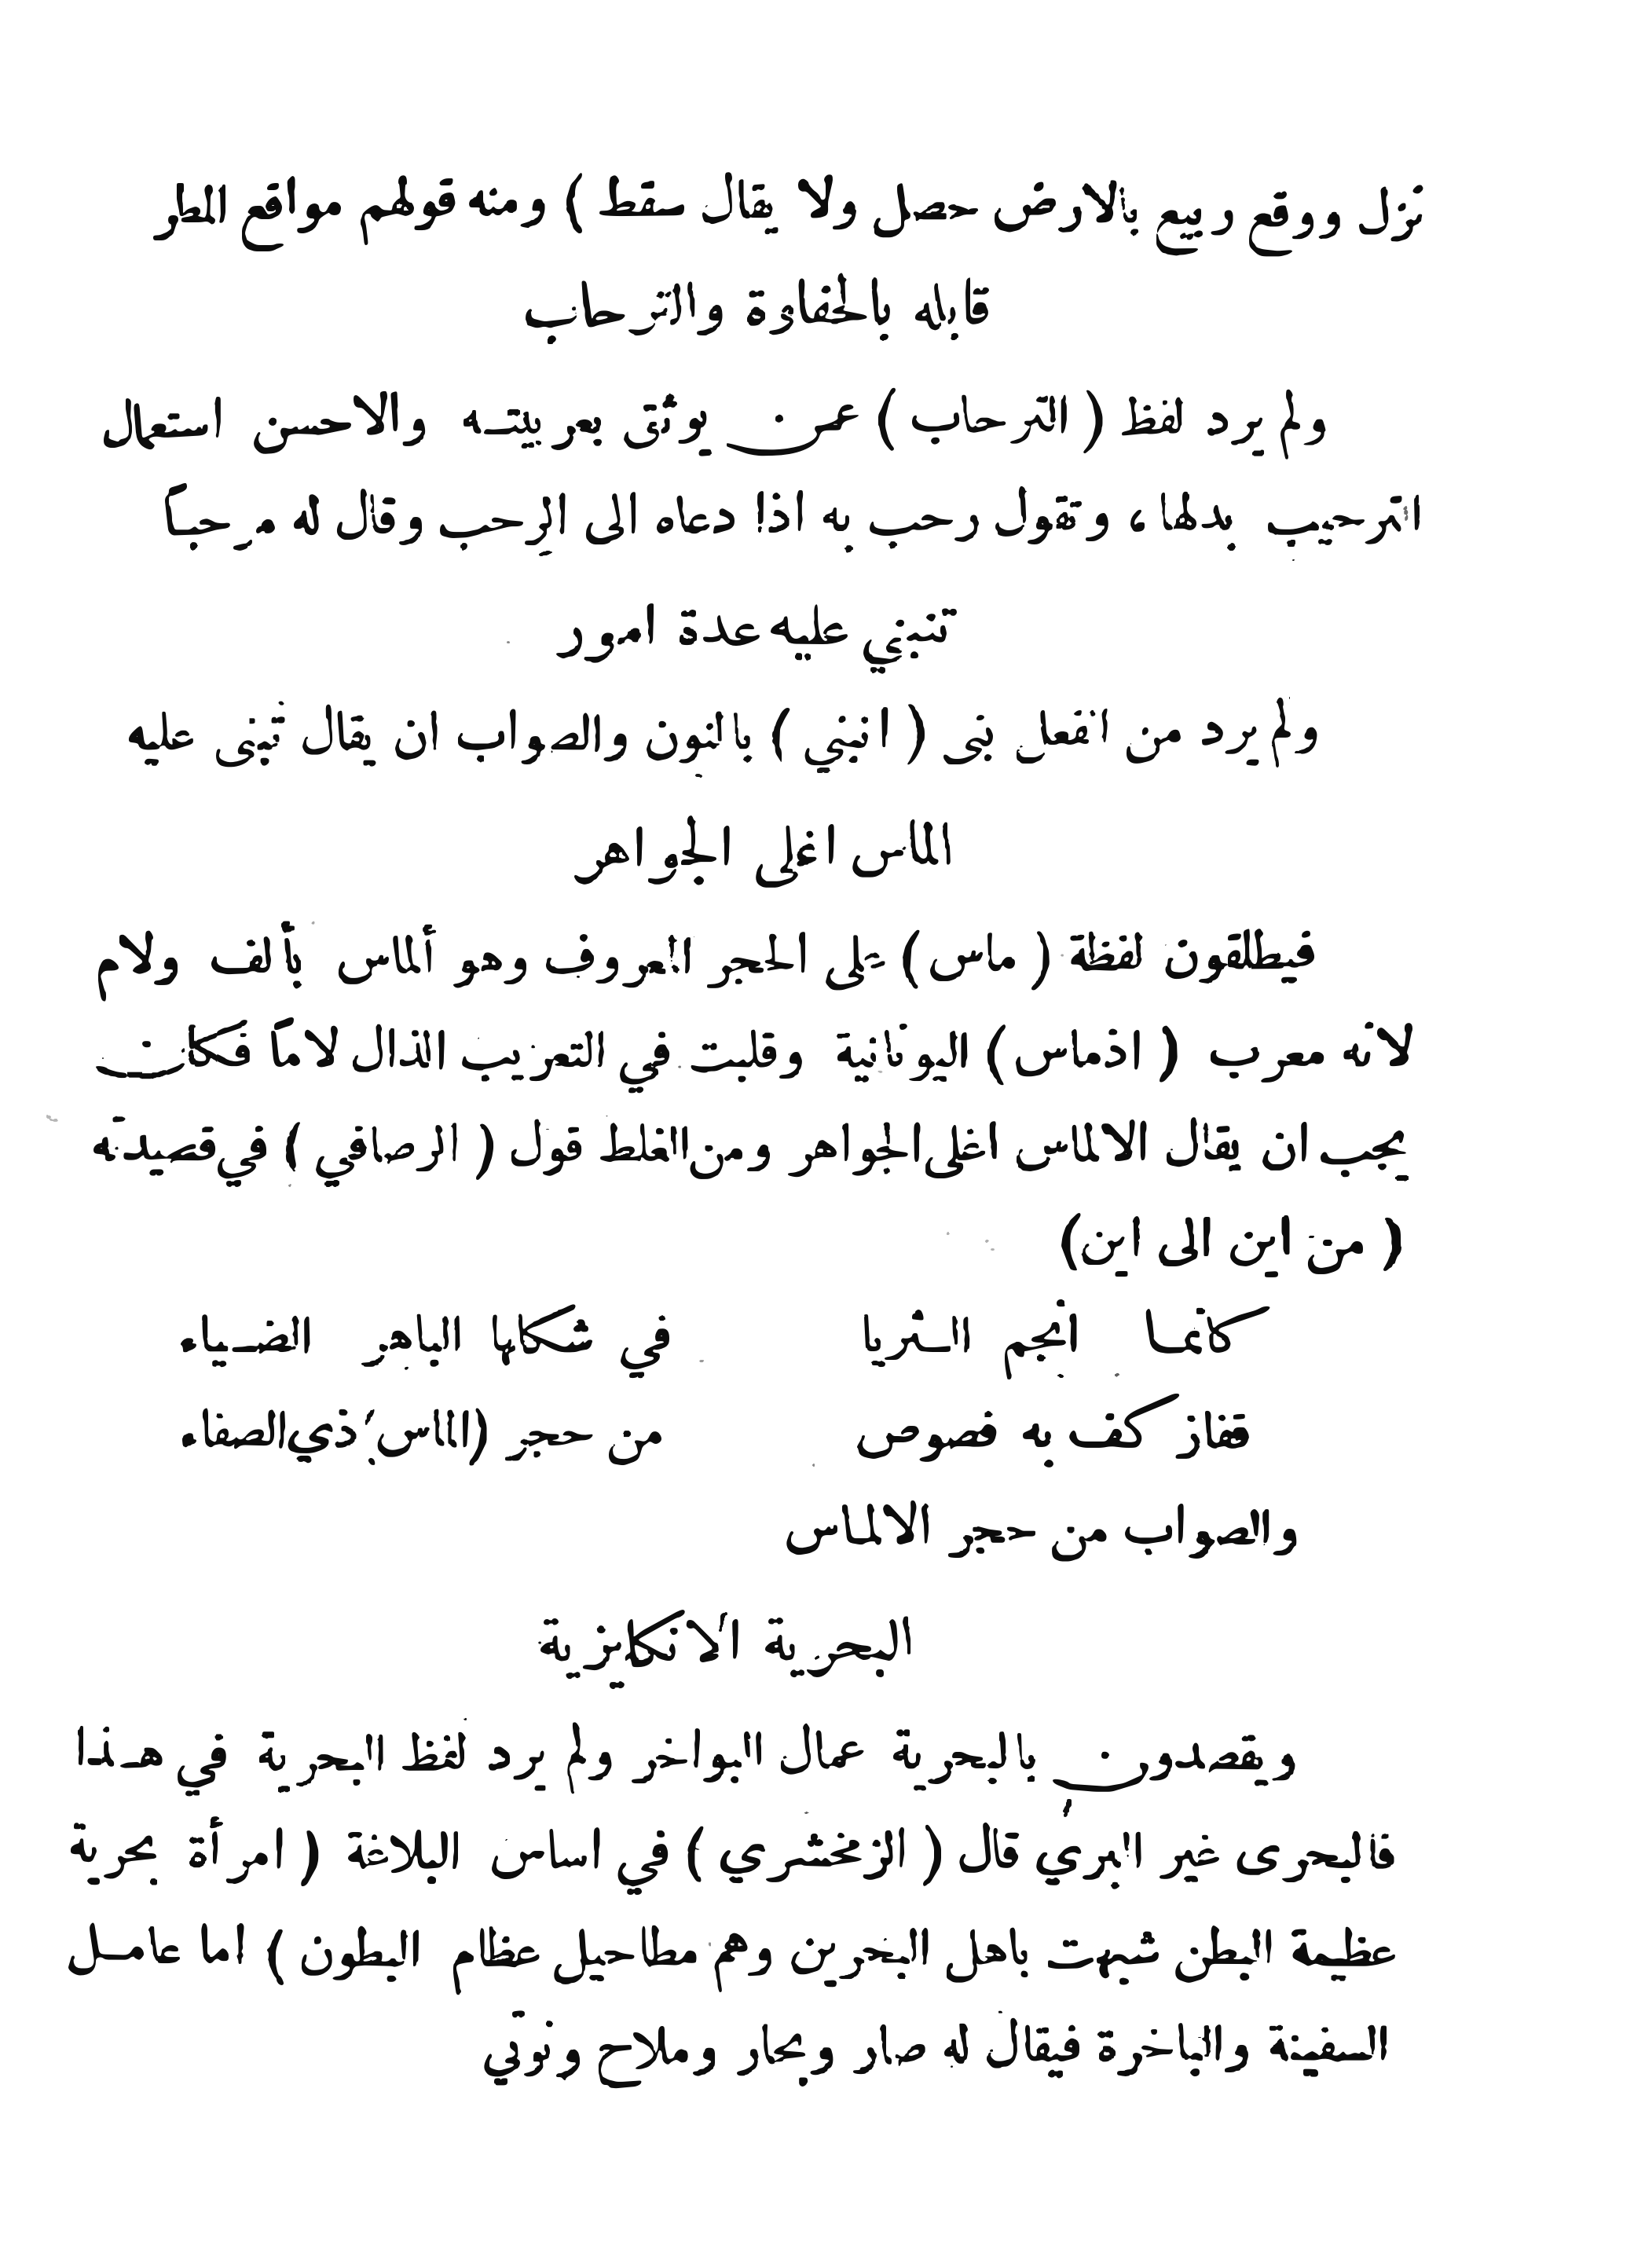 نزل ووقع ربيع بالارض حصل ولا يقال سقط ) ومنه قولهم مواقع المطر
قابله بالحفاوة والترحاب
ولم يرد لفظ ( الترحاب ) عمن يوثق بعربيتـه والاحسن استعمال
الترحيب بدلها ، وتقول رحب به اذا دعاه الى الرحب وقال له مرحبـاً
تنبني عليه عدة امور
ولم يرد من انفعل بنى ( انبني ) بالنون والصواب ان يقال تبنى عليه
الماس اغلى الجواهر
فيطلقون لفظة ( ماس ) على الحجر المعروف وهو ألماس بألف ولام
لانه معرب ( اذماس ) اليونانية وقلبت في التعريب الذال لاماً فكان
يجب ان يقال الالماس اغلى الجواهر ومن الغلط قول ( الرصافي ) في قصيدته
( من اين الى اين )
كانمـا أنجم الـثريا في شكلها الباهر الضـياء
قفاز كف به فصوص من حجر (الماس) ذي الصفاء
والصواب من حجر الالماس
البحرية الانكليزية
ويقصدون بالبحرية عمال البواخر ولم يرد لفظ البحرية في هـذا
فالبحرى غير البري قال ( الزمخشري ) في اساس البلاغة ( امرأة بحرية
عظيمة البطن شبهت باهل البحرين وهم مطاحيل عظام البطون ) اما عامـل
السفينة والباخرة فيقال له صار وبحار وملاح ونوتي